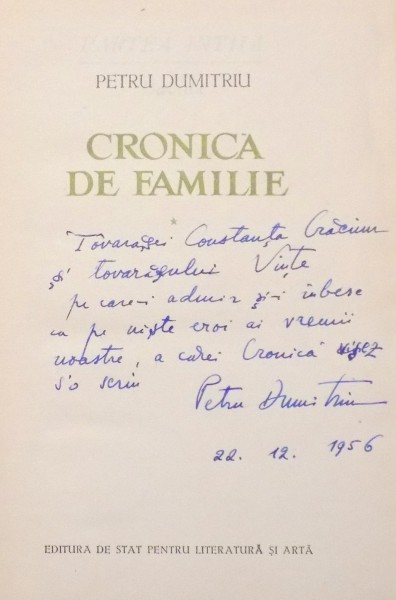 PETRU DUMITRIU
CRONICA
DE FAMILIE
*
Tovarășei Constanța Crăciun
și tovarășului Vințe
pe care-i admir și-i iubesc
ca pe niște eroi ai vremii
noastre, a cărei Cronică visez
s'o scriu
Petru Dumitriu
22. 12. 1956
EDITURA DE STAT PENTRU LITERATURĂ ȘI ARTĂ